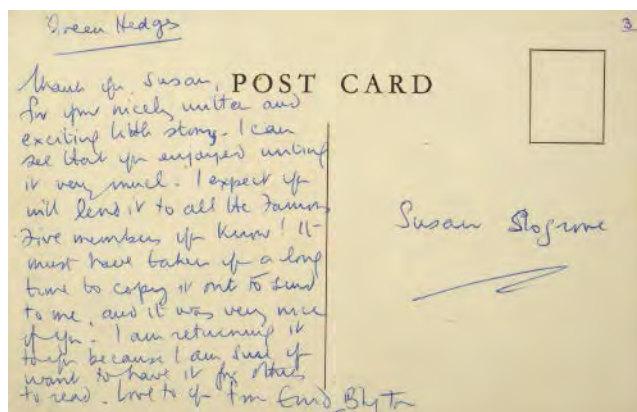 Green Hedges
3
Thank you, Susan,
POST CARD
for your nicely written and
exciting little story. I can
see that you enjoyed writing
it very much. I expect you
will lend it to all the Famous
Five members you know! It
must have taken you a long
time to copy it out to send
to me, and it was very nice
of you. I am returning it
to you because I am sure you
want to have it for others
to read. Love to you from Enid Blyton
Susan